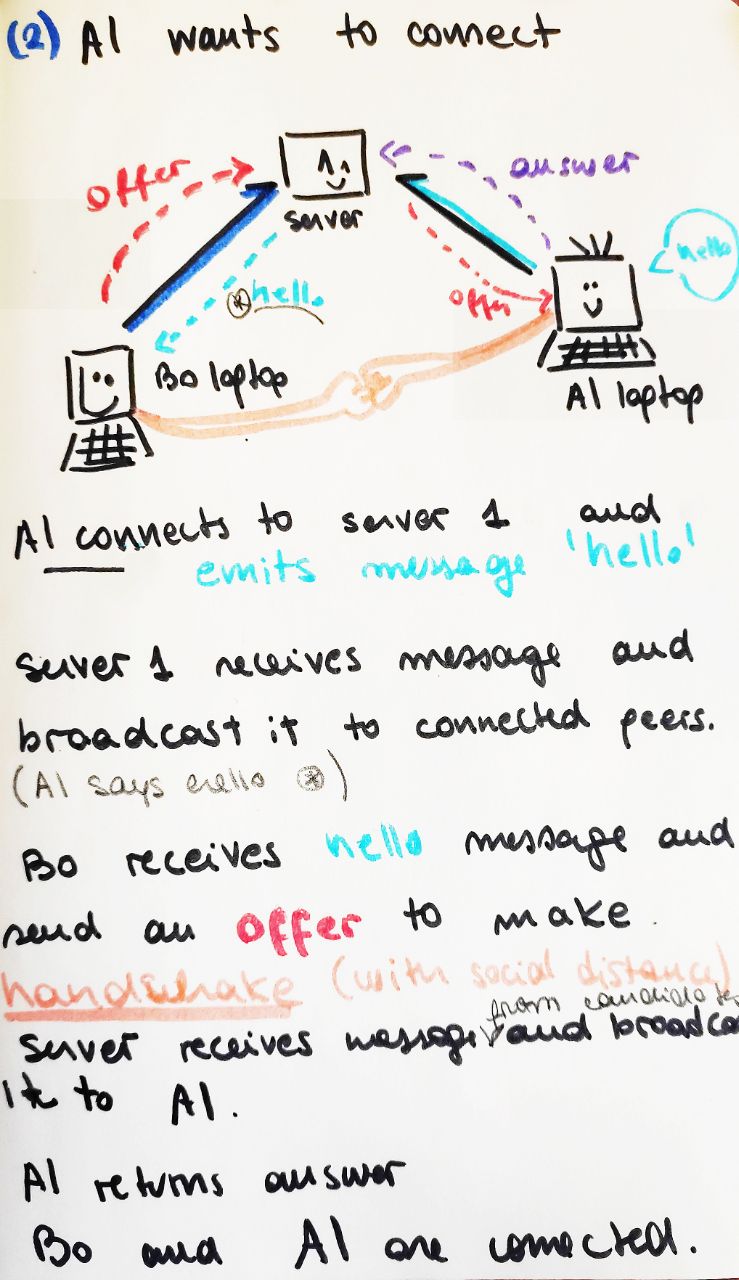 (2) Al wants to connect
offer
answer
server
hello
*hello
offer
Bo laptop
Al laptop
Al connects to server 1 and
emits message 'hello'
server 1 receives message and
broadcast it to connected peers.
(Al says hello *)
Bo receives hello message and
send an offer to make
handshake (with social distance)
from candidate
Server receives message and broadca
it to Al.
Al returns answer
Bo and Al are connected.